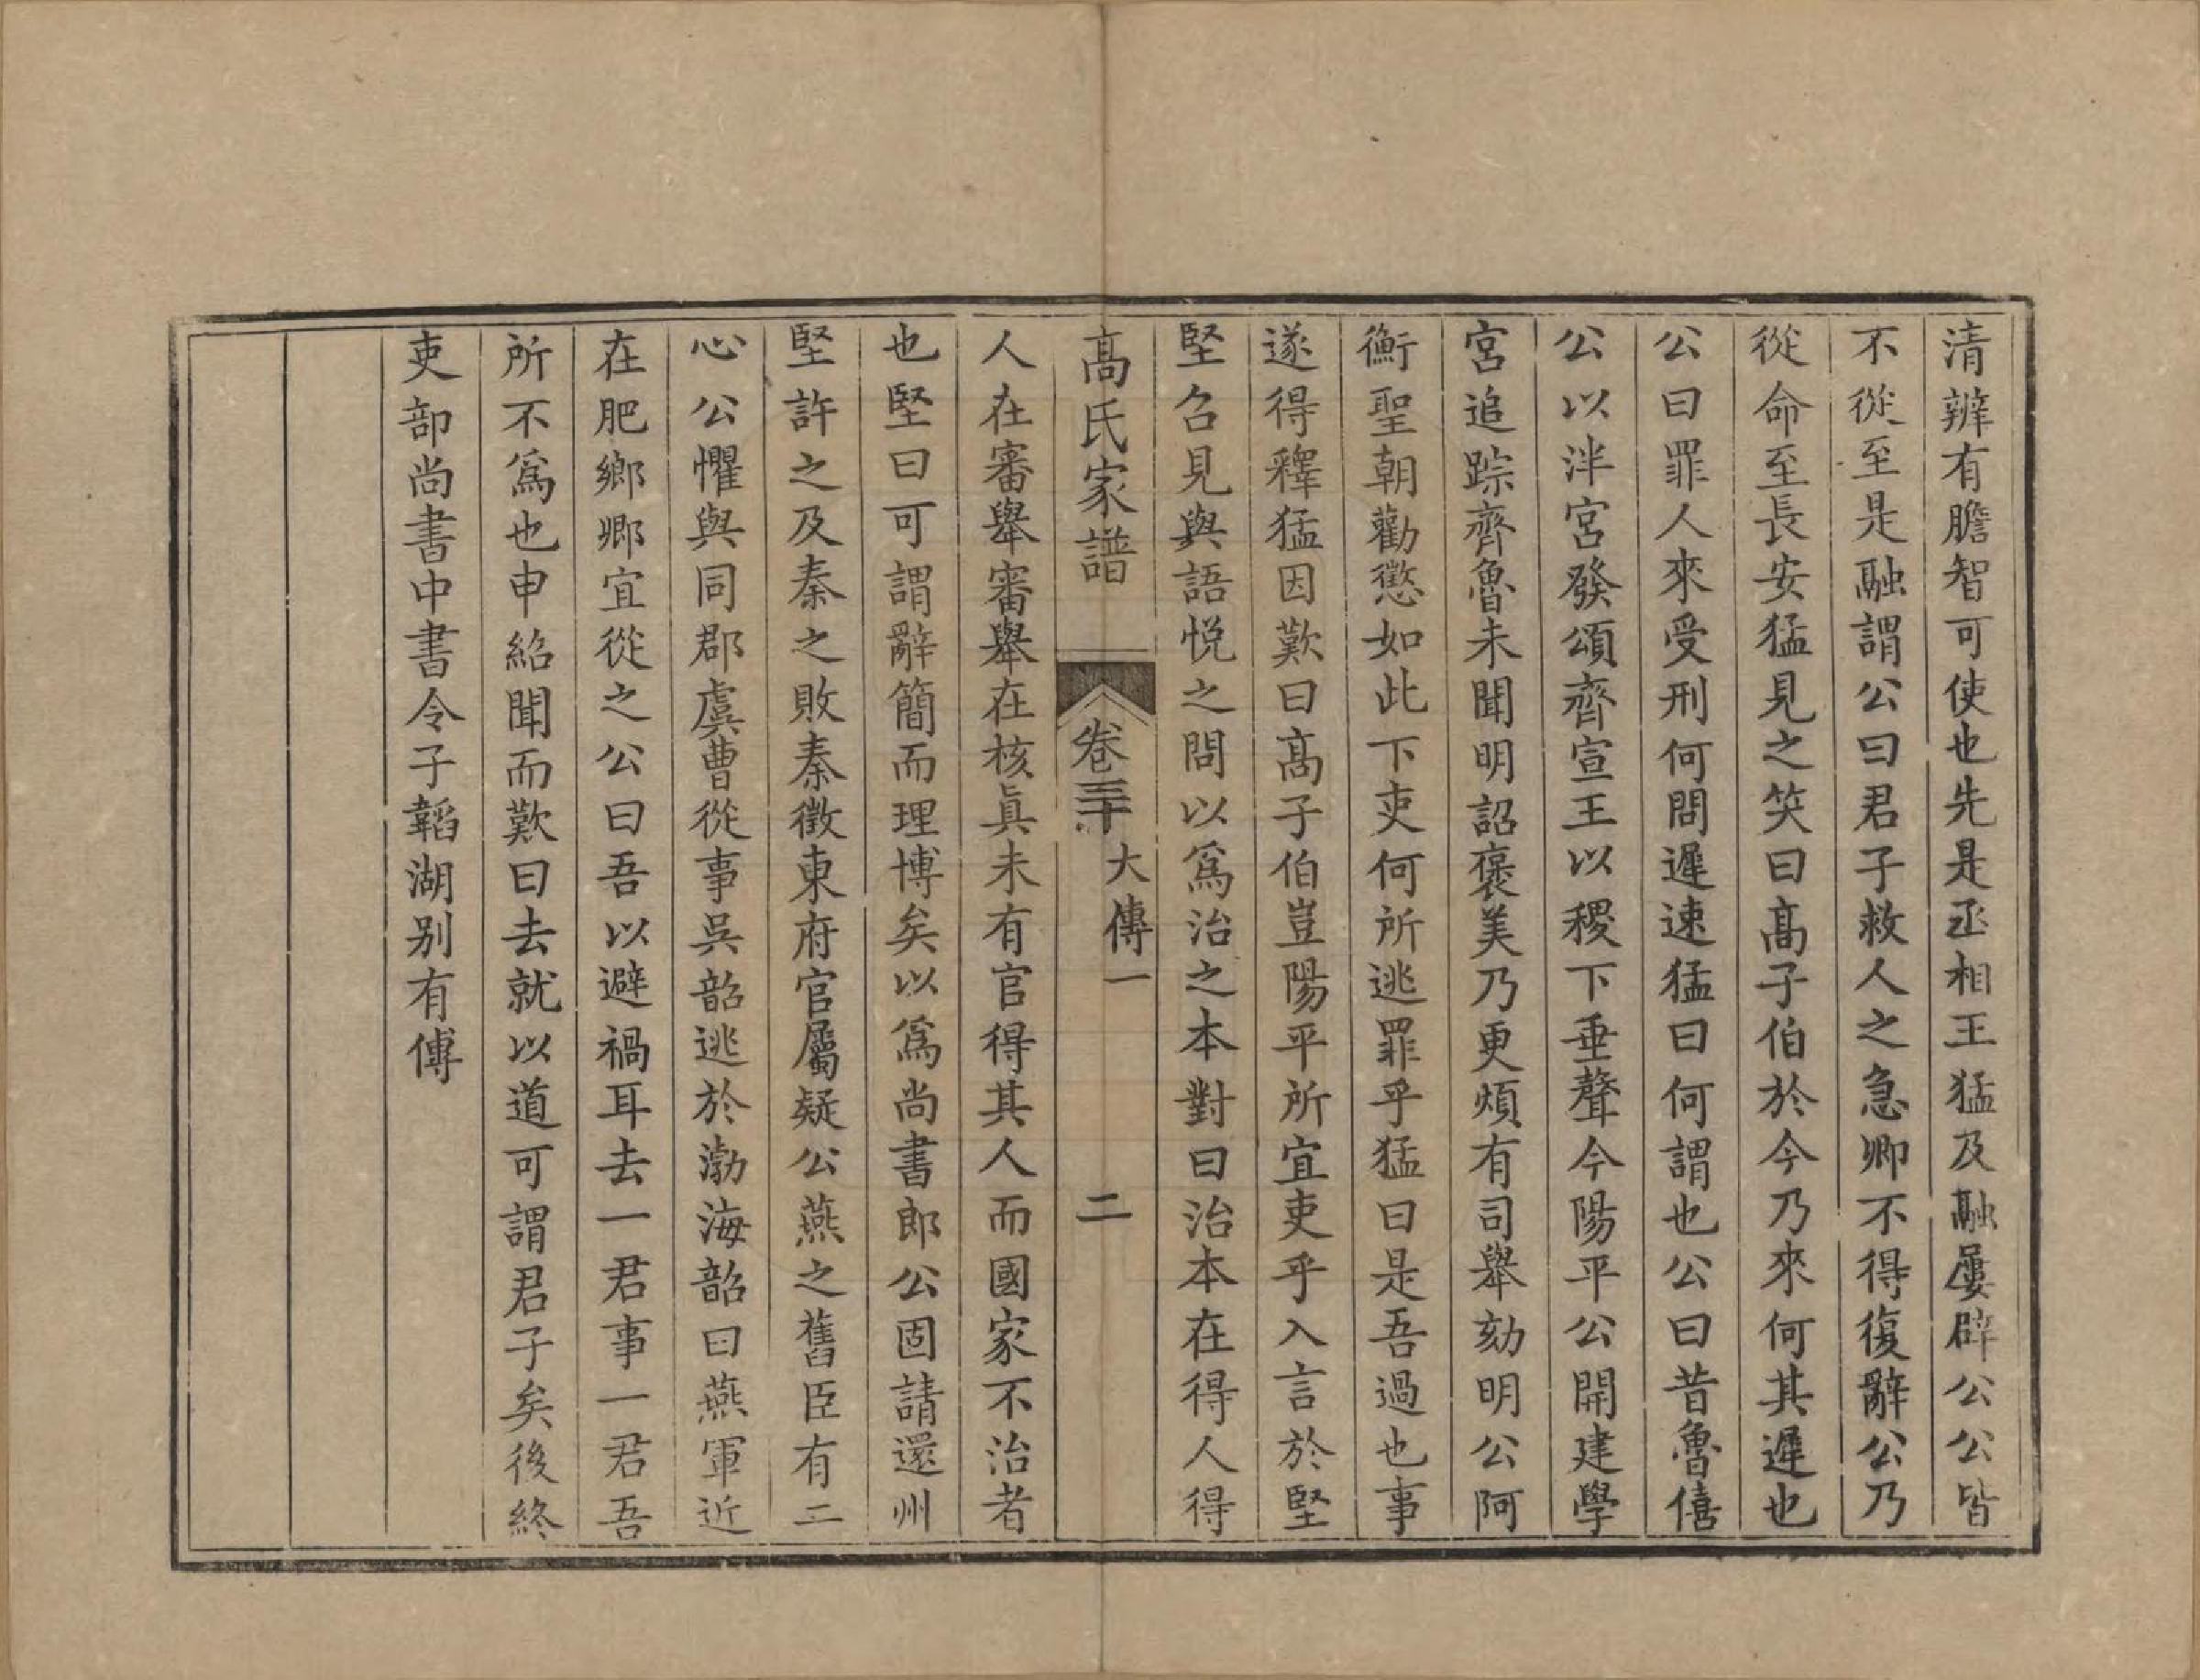 清辨有膽智可使也先是丞相王猛及融屢辟公公皆
不從至是融謂公曰君子救人之急卿不得復辭公乃
從命至長安猛見之笑曰髙子伯於今乃來何其遲也
公曰罪人來受刑何問遲速猛曰何謂也公曰昔魯僖
公以泮宮發頌齊宣王以稷下垂聲今陽平公開建學
宮追踪齊魯未聞明詔褒美乃更煩有司舉劾明公阿
衡聖朝勸懲如此下吏何所逃罪乎猛曰是吾過也事
遂得釋猛因歎曰髙子伯豈陽平所宜吏乎入言於堅
堅召見與語悅之問以爲治之本對曰治本在得人得
髙氏家譜 卷三十 大傳一 二
人在審舉審舉在核眞未有官得其人而國家不治者
也堅曰可謂辭簡而理博矣以爲尚書郎公固請還州
堅許之及秦之敗秦徵東府官屬疑公燕之舊臣有二
心公懼與同郡虞曹從事吳韶逃於渤海韶曰燕軍近
在肥鄉卿宜從之公曰吾以避禍耳去一君事一君吾
所不爲也申紹聞而歎曰去就以道可謂君子矣後終
吏部尚書中書令子韜湖别有傳